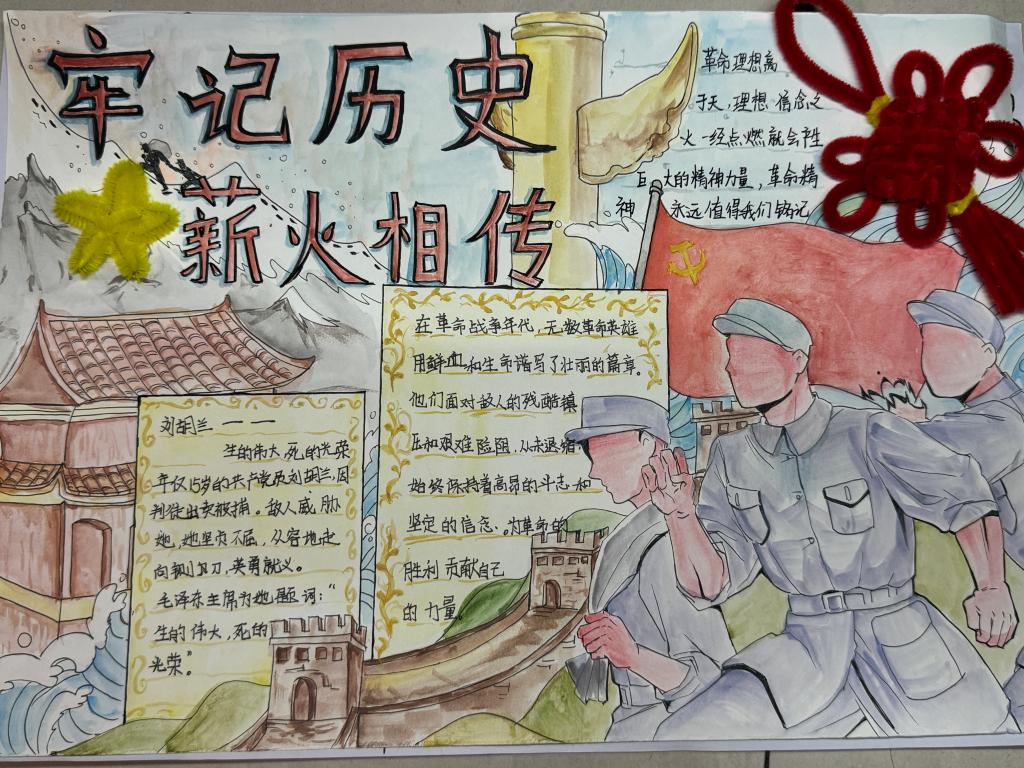 牢记历史
薪火相传
革命理想高
于天,理想信念之
火一经点燃就会产生
巨大的精神力量,革命精
神永远值得我们铭记
刘胡兰——
生的伟大,死的光荣
年仅15岁的共产党员刘胡兰,因
判徒出卖被捕。敌人威胁
她,她坚贞不屈,从容地走
向铡刀,英勇就义。
毛泽东主席为她题词:“
生的伟大,死的
光荣。”
在革命战争年代,无数革命英雄
用鲜血和生命谱写了壮丽的篇章。
他们面对敌人的残酷镇
压和艰难险阻,从未退缩,
始终保持着高昂的斗志和
坚定的信念。为革命的
胜利贡献自己
的力量。